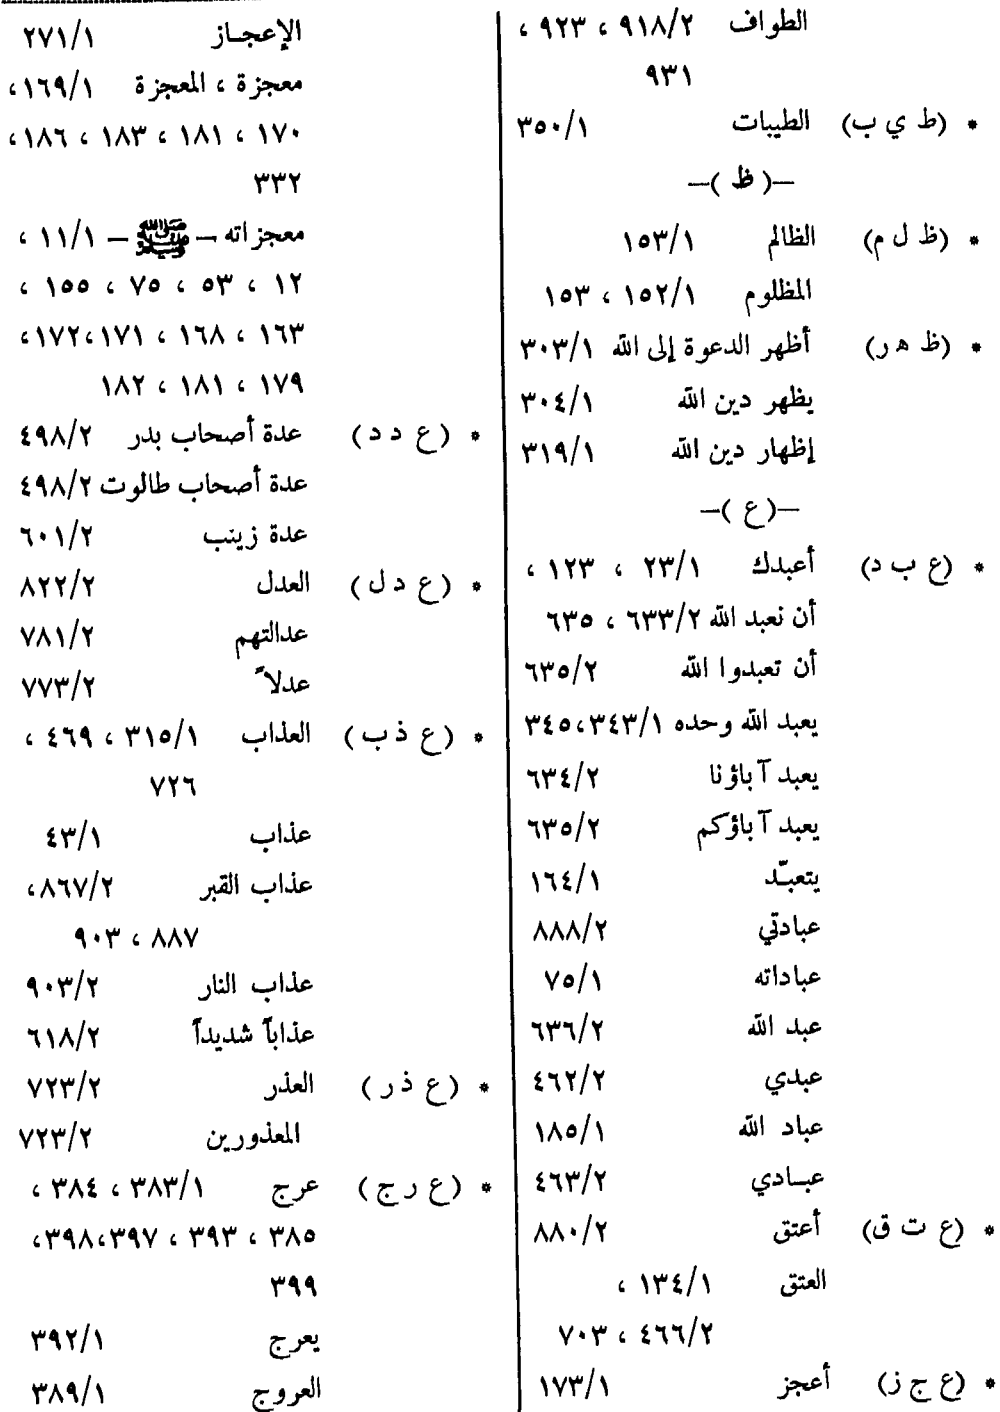 الطواف ٩١٨/٢ ، ٩٢٣ ،
٩٣١
* (ط ي ب) الطيبات ٣٥٠/١
–( ظ )–
* (ظ ل م) الظالم ١٥٣/١
المظلوم ١٥٢/١ ، ١٥٣
* (ظ هـ ر) أظهر الدعوة إلى الله ٣٠٣/١
يظهر دين الله ٣٠٤/١
إظهار دين الله ٣١٩/١
–( ع )–
* (ع ب د) أعبدك ٢٣/١ ، ١٢٣ ،
أن نعبد الله ٦٣٣/٢ ، ٦٣٥
أن تعبدوا الله ٦٣٥/٢
يعبد الله وحده ٣٤٣/١،٣٤٥
يعبد آباؤنا ٦٣٤/٢
يعبد آباؤكم ٦٣٥/٢
يتعبّد ١٦٤/١
عبادتي ٨٨٨/٢
عباداته ٧٥/١
عبد الله ٦٣٦/٢
عبدي ٤٦٢/٢
عباد الله ١٨٥/١
عبادي ٤٦٣/٢
* (ع ت ق) أعتق ٨٨٠/٢
العتق ١٣٤/١ ،
٤٦٦/٢ ، ٧٠٣
* (ع ج ز) أعجز ١٧٣/١
الإعجاز ٢٧١/١
معجزة ، المعجزة ١٦٩/١،
١٧٠ ، ١٨١ ، ١٨٣ ، ١٨٦،
٣٣٢
معجزاته – ﷺ – ١١/١ ،
١٢ ، ٥٣ ، ٧٥ ، ١٥٥ ،
١٦٣ ، ١٦٨ ، ١٧١،١٧٢،
١٧٩ ، ١٨١ ، ١٨٢
* (ع د د) عدة أصحاب بدر ٤٩٨/٢
عدة أصحاب طالوت ٤٩٨/٢
عدة زينب ٦٠١/٢
* (ع د ل) العدل ٨٢٢/٢
عدالتهم ٧٨١/٢
عدلاً ٧٧٣/٢
* (ع ذ ب) العذاب ٣١٥/١ ، ٤٦٩ ،
٧٢٦
عذاب ٤٣/١
عذاب القبر ٨٦٧/٢،
٨٨٧ ، ٩٠٣
عذاب النار ٩٠٣/٢
عذاباً شديداً ٦١٨/٢
* (ع ذ ر) العذر ٧٢٣/٢
المعذورين ٧٢٣/٢
* (ع ر ج) عرج ٣٨٣/١ ، ٣٨٤ ،
٣٨٥ ، ٣٩٣ ، ٣٩٧،٣٩٨،
٣٩٩
يعرج ٣٩٢/١
العروج ٣٨٩/١